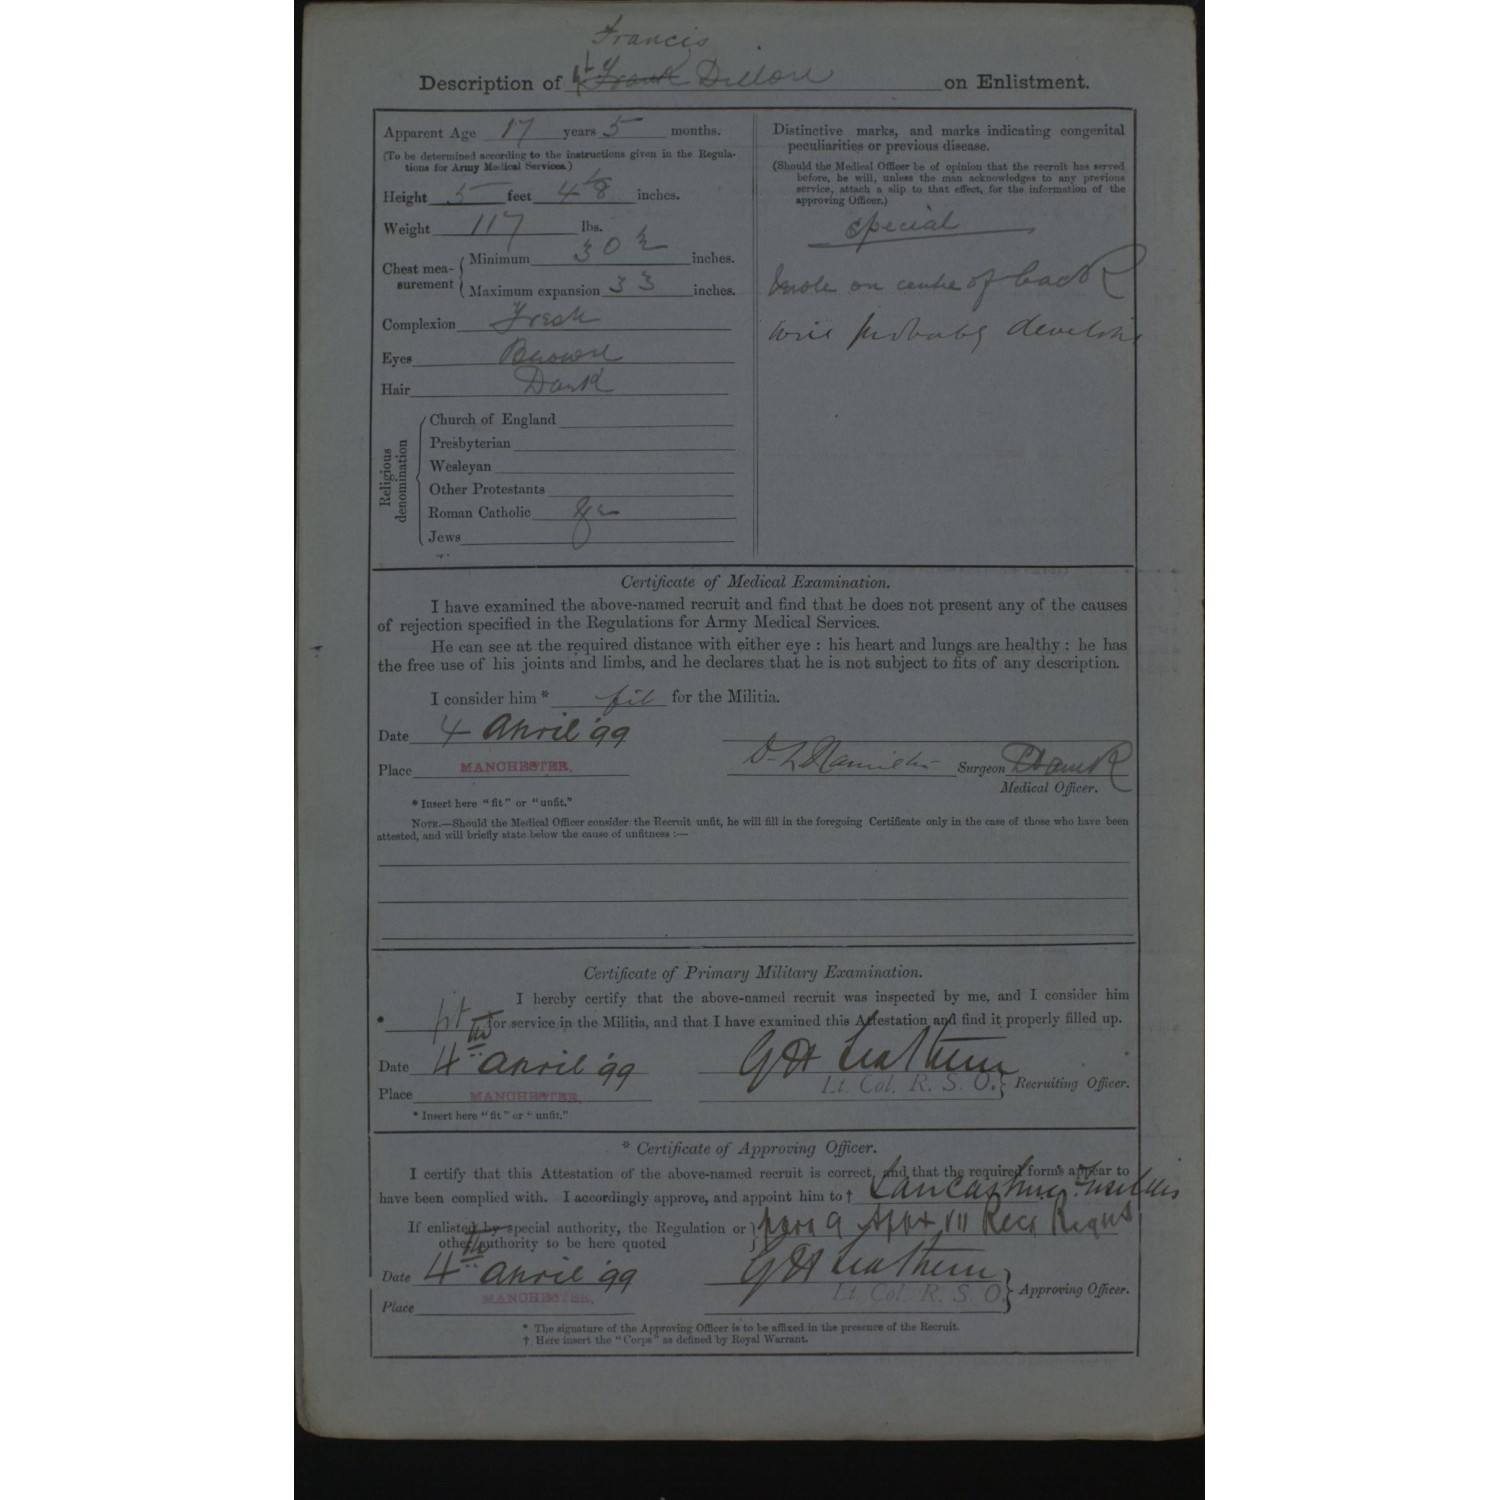 Francis
Description of Frank Dillon on Enlistment.
Apparent Age 17 years 5 months.
(To be determined according to the instructions given in the Regula-
tions for Army Medical Services.)
Height 5 feet 4 1/8 inches.
Weight 117 lbs.
Chest mea-
surement
Minimum 30 1/2 inches.
Maximum expansion 33 inches.
Complexion Fresh
Eyes Brown
Hair Dark
Religious
denomination
Church of England
Presbyterian
Wesleyan
Other Protestants
Roman Catholic
Jews
Distinctive marks, and marks indicating congenital
peculiarities or previous disease.
(Should the Medical Officer be of opinion that the recruit has served
before, he will, unless the man acknowledges to any previous
service, attach a slip to that effect, for the information of the
approving Officer.)
special
mole on centre of back
will probably develop
Certificate of Medical Examination.
I have examined the above-named recruit and find that he does not present any of the causes
of rejection specified in the Regulations for Army Medical Services.
He can see at the required distance with either eye : his heart and lungs are healthy : he has
the free use of his joints and limbs, and he declares that he is not subject to fits of any description.
I consider him * fit for the Militia.
Date 4 April '99
Place MANCHESTER.
Surgeon
Medical Officer.
* Insert here "fit" or "unfit."
NOTE.—Should the Medical Officer consider the Recruit unfit, he will fill in the foregoing Certificate only in the case of those who have been
attested, and will briefly state below the cause of unfitness :—
Certificate of Primary Military Examination.
I hereby certify that the above-named recruit was inspected by me, and I consider him
* fit for service in the Militia, and that I have examined this Attestation and find it properly filled up.
Date 4th April '99
G H Leathem
Lt. Col. R. S. O. Recruiting Officer.
Place MANCHESTER.
* Insert here "fit" or "unfit."
* Certificate of Approving Officer.
I certify that this Attestation of the above-named recruit is correct, and that the required forms appear to
have been complied with. I accordingly approve, and appoint him to † Lancashire Fusiliers
If enlisted by special authority, the Regulation or
other authority to be here quoted
para 9 Appx VII Recg Regns
Date 4th April '99
G H Leathem
Lt. Col. R. S. O. Approving Officer.
Place MANCHESTER.
* The signature of the Approving Officer is to be affixed in the presence of the Recruit.
† Here insert the "Corps" as defined by Royal Warrant.